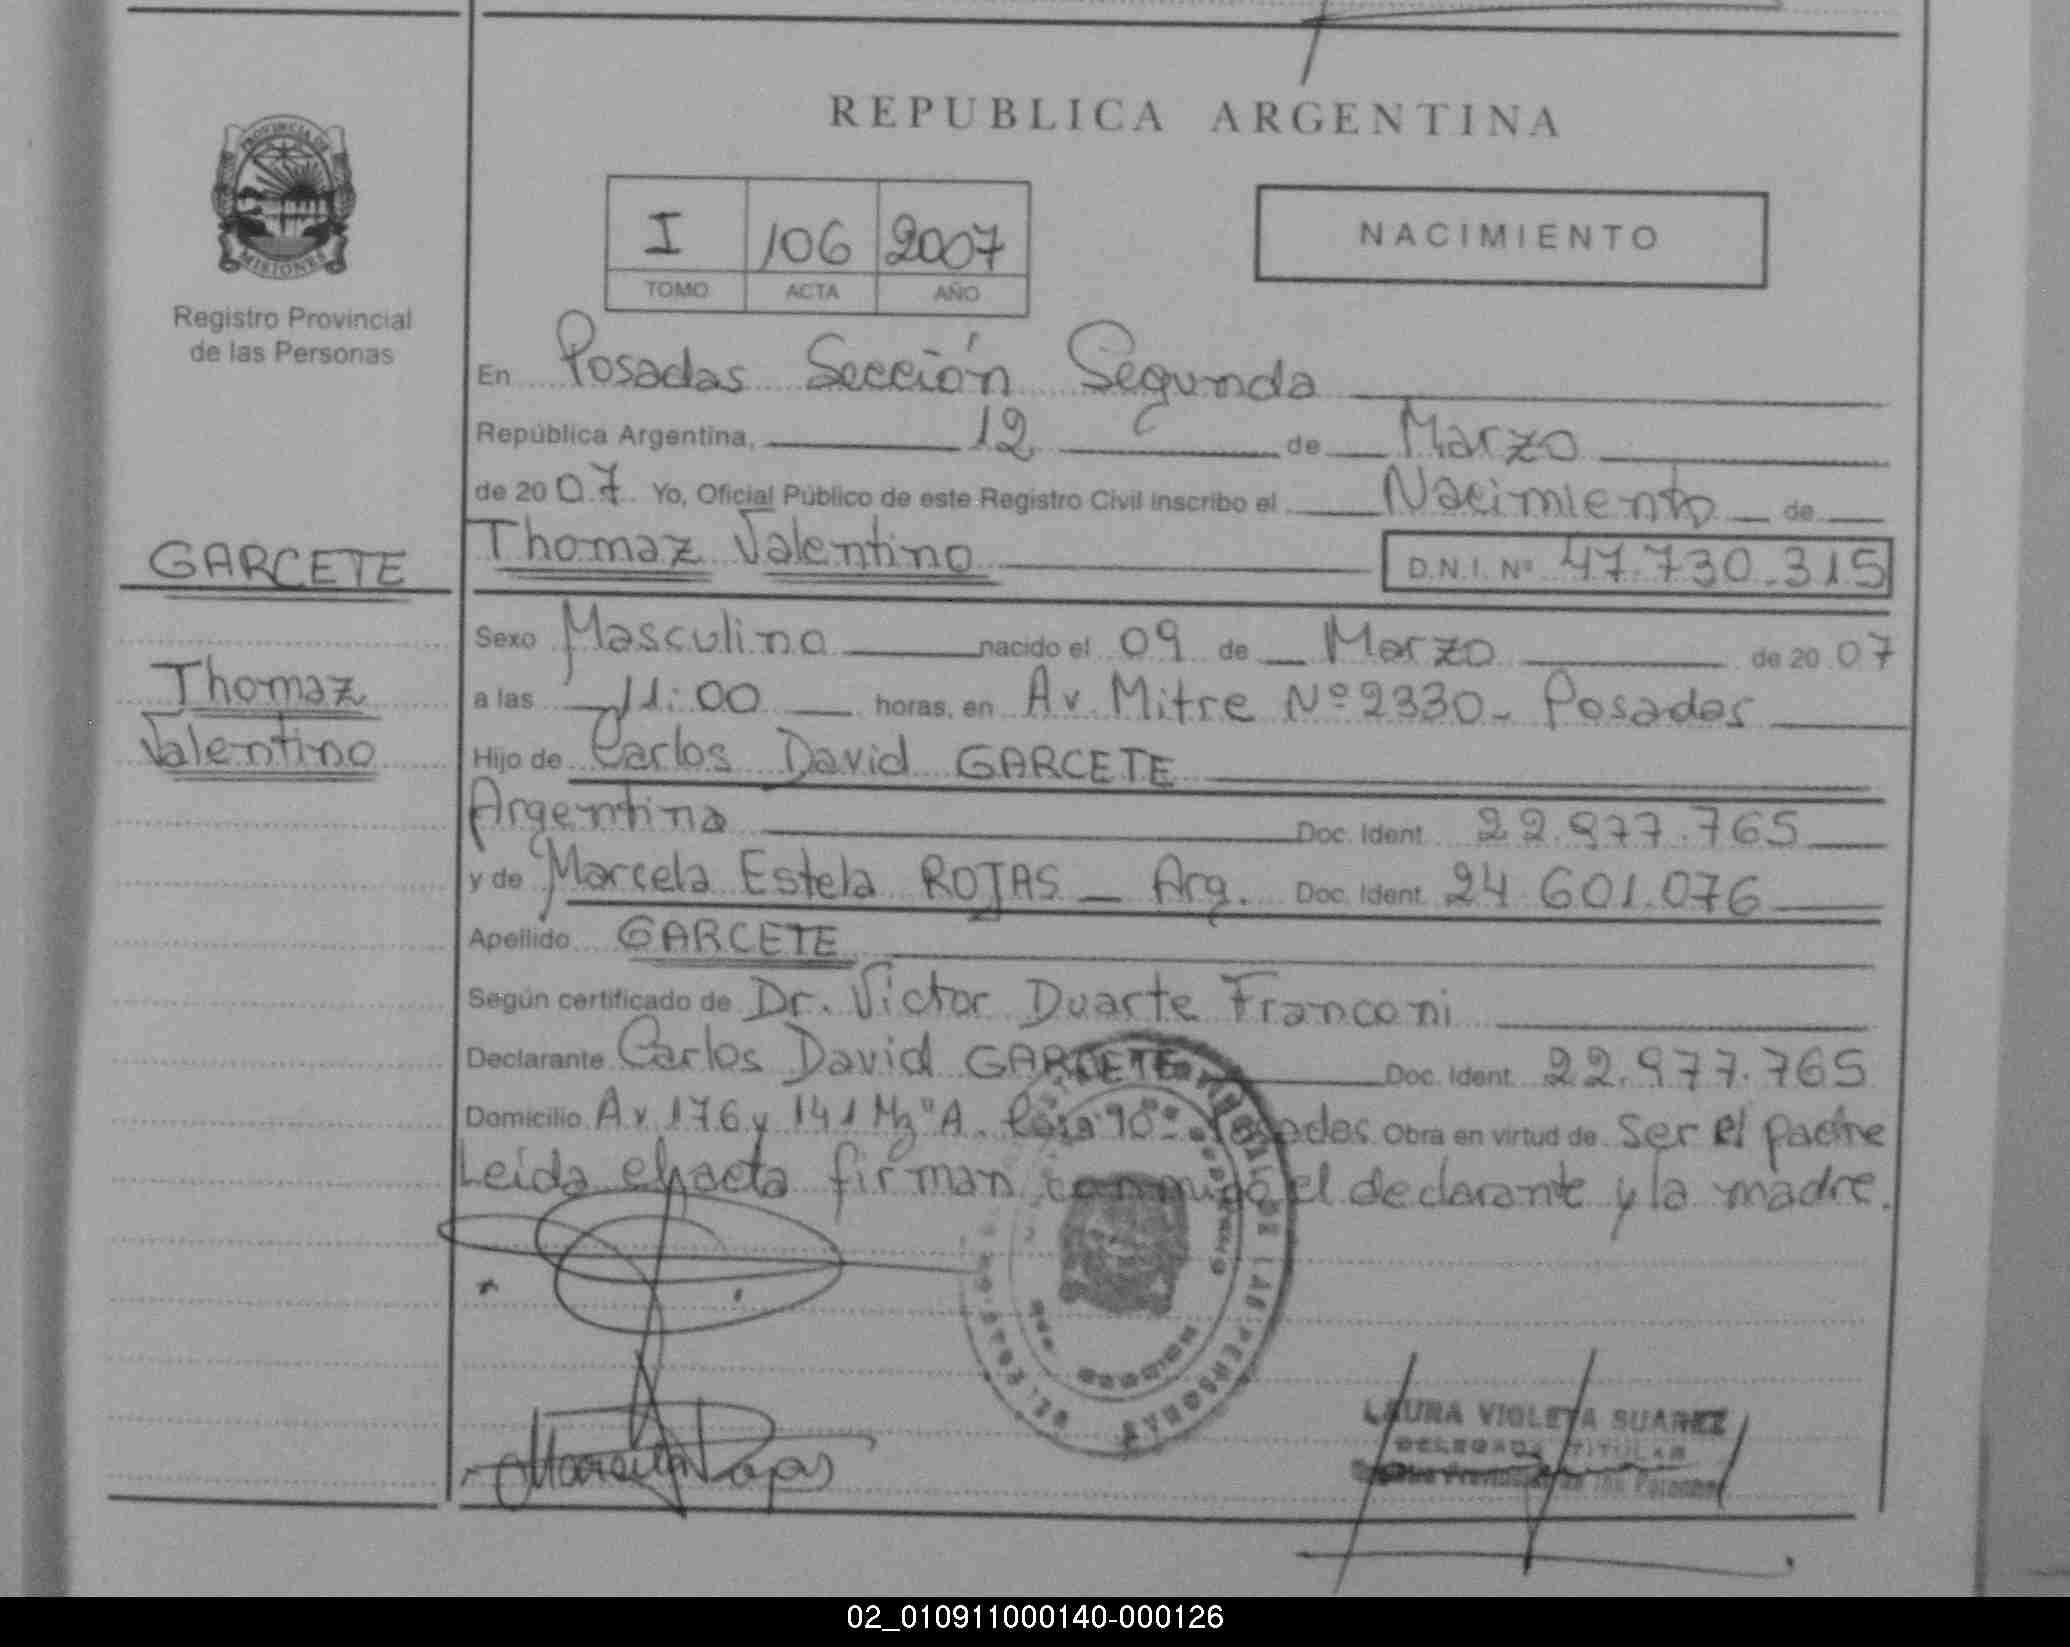 REPUBLICA ARGENTINA
PROVINCIA DE
MISIONES
Registro Provincial
de las Personas
I 106 2007
TOMO ACTA AÑO
NACIMIENTO
En Posadas Sección Segunda
República Argentina, 12 de Marzo
de 20 07 Yo, Oficial Público de este Registro Civil inscribo el Nacimiento de
GARCETE
Thomaz Valentino D.N.I. Nº 47.730.315
Sexo Masculino nacido el 09 de Marzo de 20 07
Thomaz
Valentino
a las 11:00 horas, en Av. Mitre Nº 2330 - Posadas
Hijo de Carlos David GARCETE
Argentina Doc. Ident. 22.977.765
y de Marcela Estela ROJAS - Arg. Doc. Ident. 24.601.076
Apellido GARCETE
Según certificado de Dr. Victor Duarte Franconi
Declarante Carlos David GARCETE Doc. Ident. 22.977.765
Domicilio Av 176 y 141 Mz "A. Casa 90 Posadas Obra en virtud de ser el padre
Leida el acta firman conmigo el declarante y la madre.
DE LAS PERSONAS
Marcela Rojas
LAURA VIOLETA SUAREZ
DELEGADA TITULAR
02_010911000140-000126